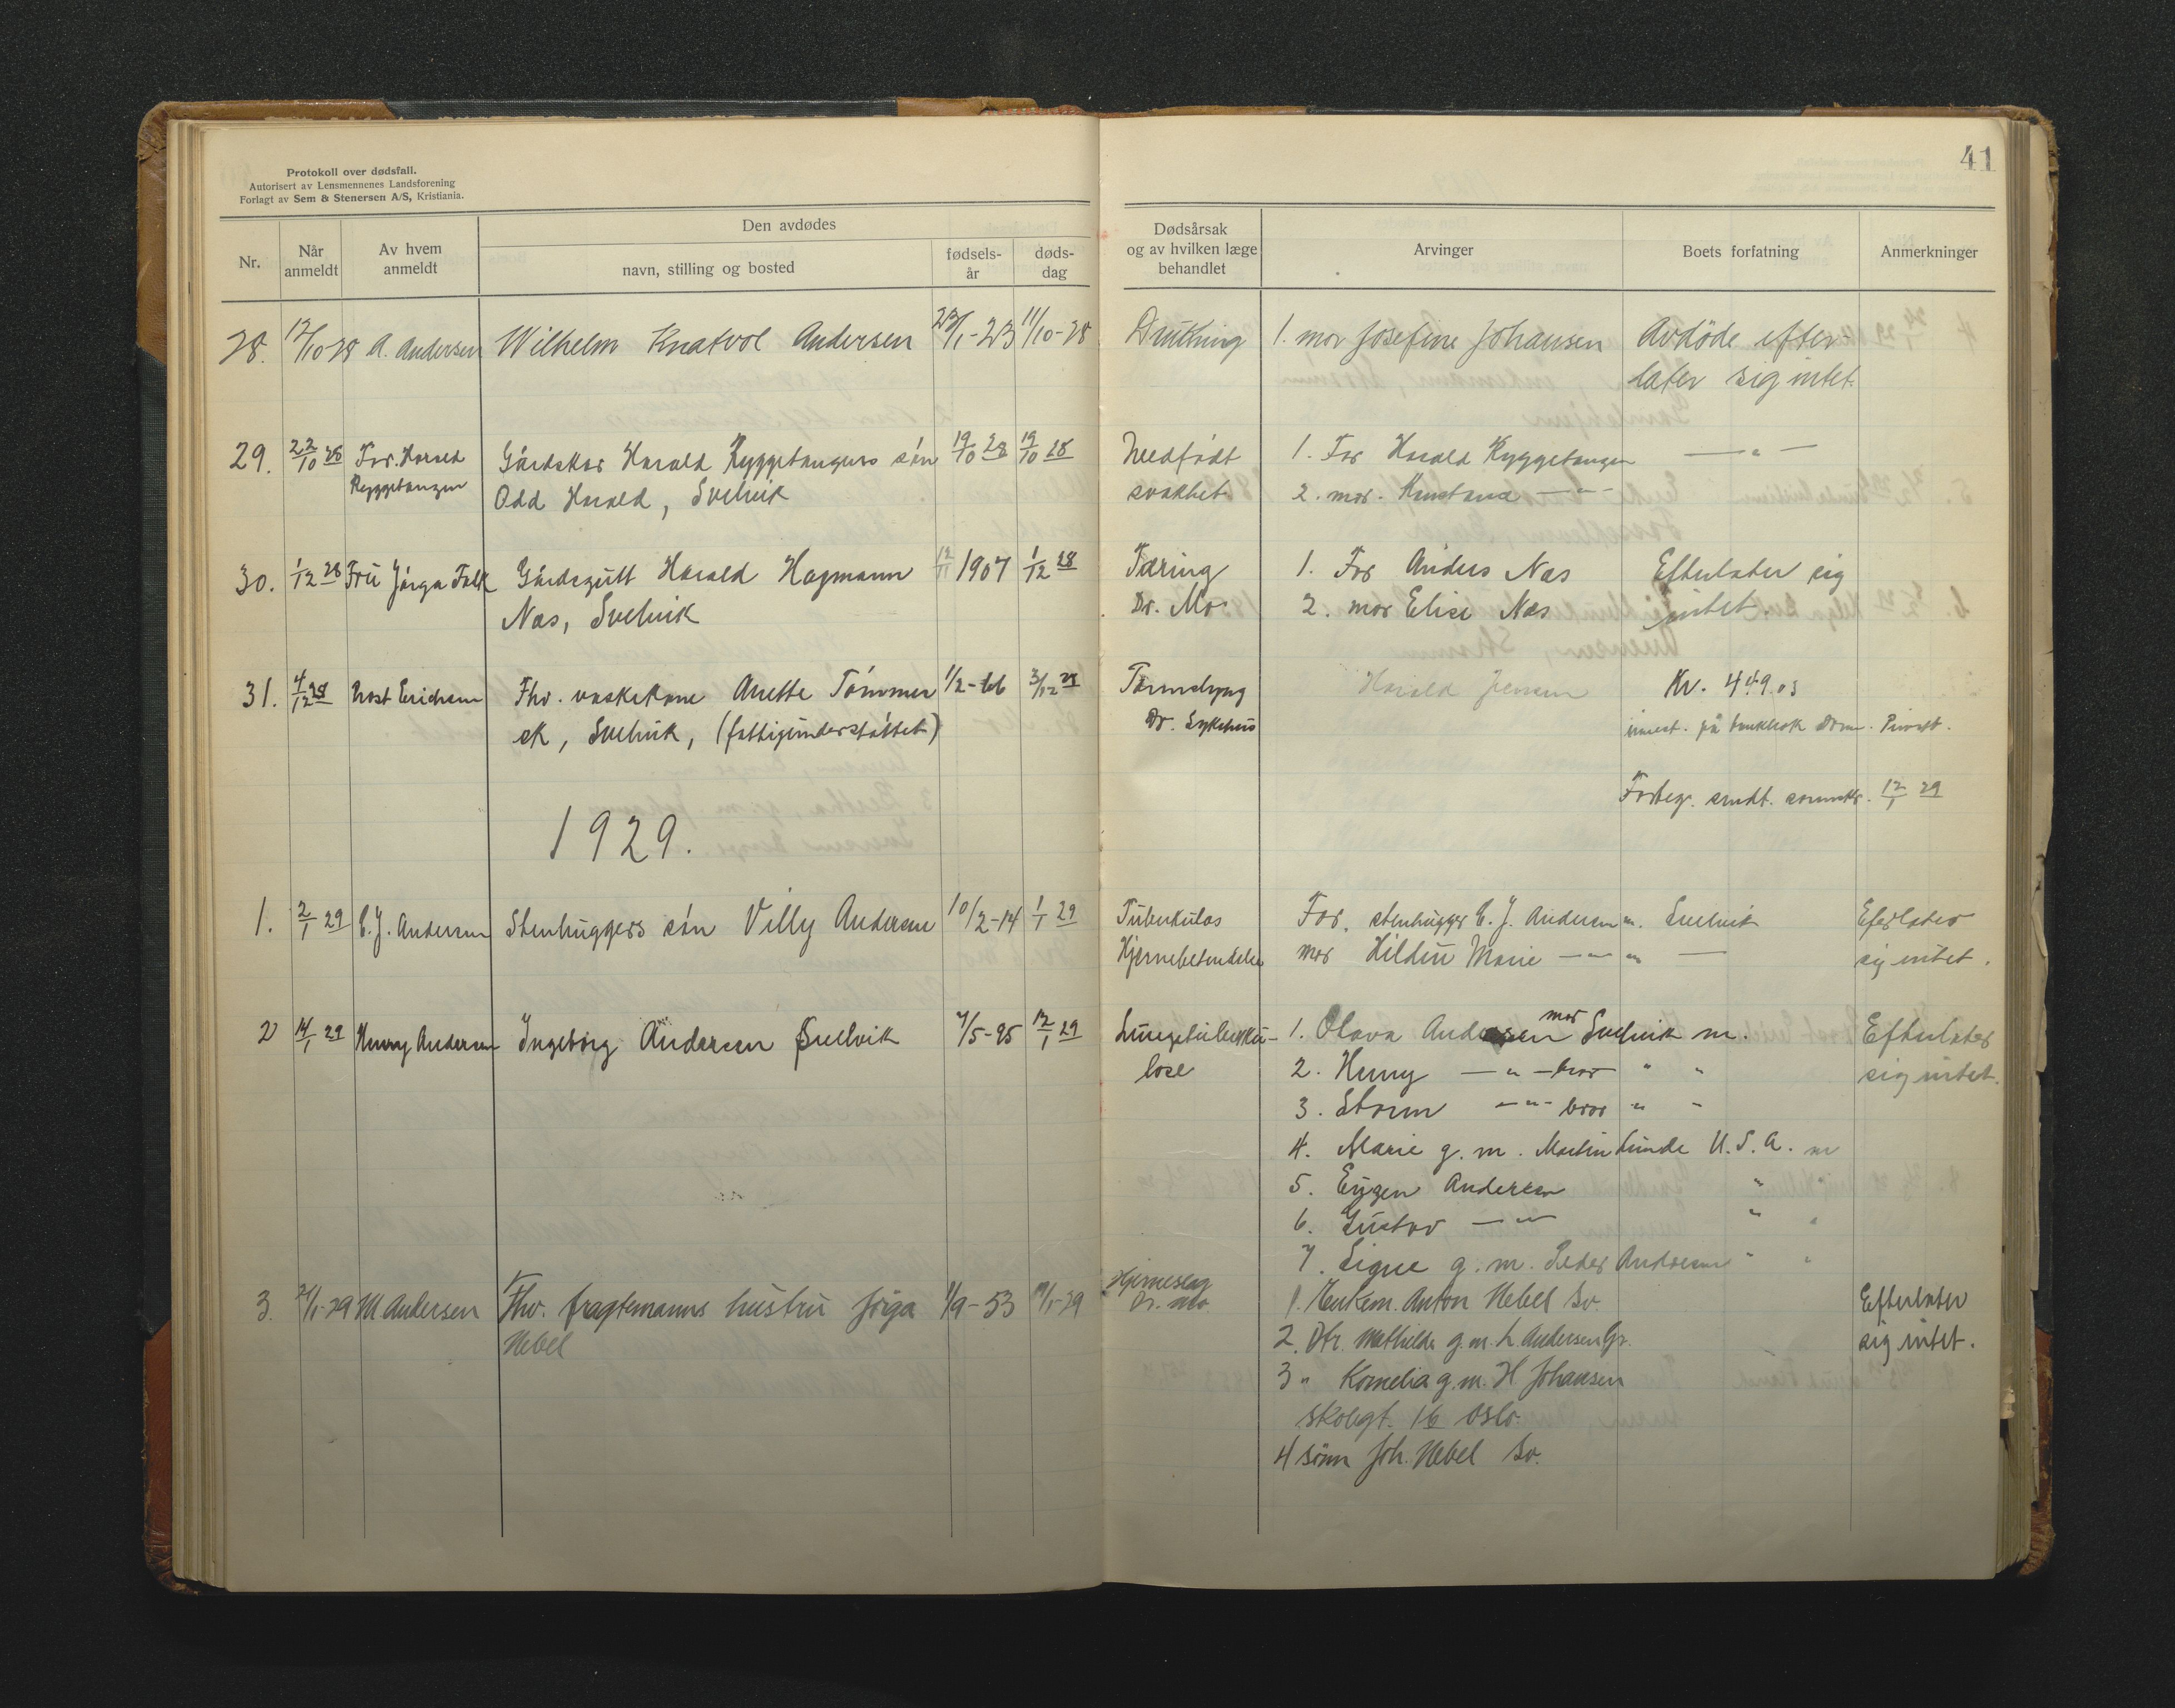 Protokoll over dødsfall.
Autorisert av Lensmennenes Landsforening
Forlagt av Sem & Stenersen A/S, Kristiania.
41
Nr.
Når anmeldt
Av hvem anmeldt
Den avdødes
navn, stilling og bosted
fødsels-år
døds-dag
Dødsårsak og av hvilken læge behandlet
Arvinger
Boets forfatning
Anmerkninger
28. 12/10-28 A. Andersen Wilhelm Knatvol Andersen 23/1-23 11/10-28 Drukning 1. mor Josefine Johansen Avdöde efter-
later sig intet.
29. 22/10 28 Far. Harald Gårdskar Harald Ryggetangens sön 19/10 28 19/10 28 Medfödt 1. Far Harald Ryggetangen — " —
Ryggetangen Odd Harald, Svelvik svakhet 2. mor. Kristiane — " —
30. 1/12 28 Fru Jörga Falk Gårdsgutt Harald Hagmann 12/11 1907 1/12 28 Tæring 1. Far Anders Næs Efterlater sig
Næs, Svelvik Dr. Mo. 2. mor Elise Næs intet.
31. 4/12 28 Prost Erichsen Fhv. vaskekone Anette Tömmer 1/2-66 3/12 28 Tarmslyng Harald Jensen Kr. 449.03
ek, Svelvik, (fattigunderstöttet) Dr. Sykehus innest. på bankbok Dram. Privatb.
Forteg. sendt. sorenskr. 12/1 29
1929.
1. 2/1 29 C. J. Andersen Stenhuggers sön Villy Andersen 10/2-14 1/1 29 Tuberkulos Far. stenhugger C. J. Andersen m. Svelvik Efterlater
Hjernebetendelse mor Hildur Marie — " — " — sig intet.
2 14/1 29 Henry Andersen Ingeborg Andersen Svelvik 7/5-95 12/1 29 Lungetuberku- 1. Olava Andersen mor Svelvik m. Efterlater
lose 2. Henry — " — bror " " sig intet.
3. Storm — " — bror " "
4. Marie g. m. Martin Lunde U. S. A. m
5. Eugen Andersen " "
6. Gustav — " — " "
7. Signe g. m. Peder Andersen " "
3. 21/1-29 M Andersen Fhv. fragtemanns hustru Jörga 1/9-53 19/1-29 Hjerneslag 1. Enkem. Anton Hebel Sv. Efterlater
Hebel Dr. Mo. 2. Dtr. Mathilde g. m. L. Andersen Sv. sig intet.
3 " Kornelia g. m. H Johansen
Skolegt. 16 Oslo.
4 Sönn Joh. Hebel Sv.